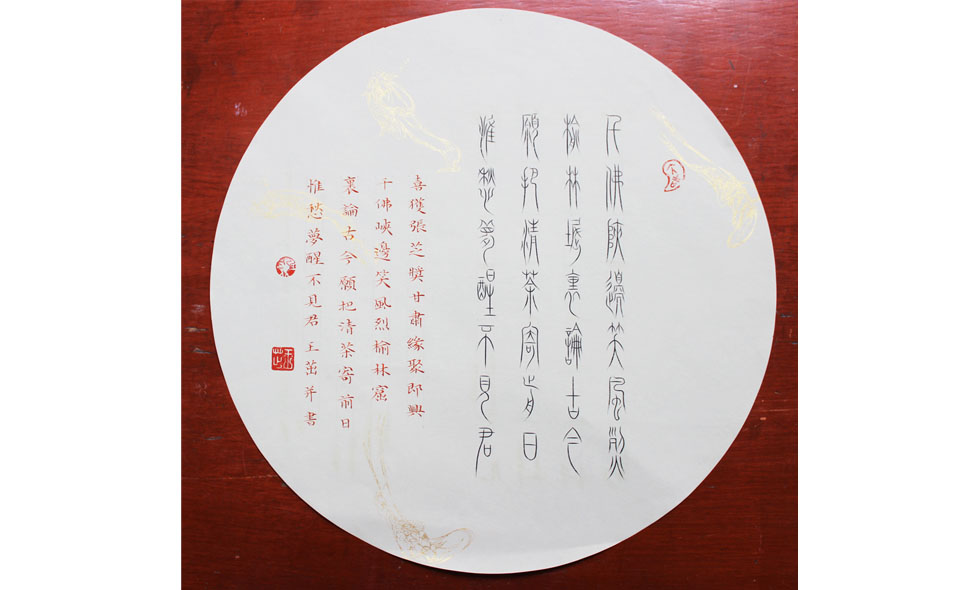 千佛陜邊笑風烈
榆林堀裏論古今
願把清茶寄前日
惟愁夢醒不見君
喜獲張芝獎甘肅緣聚即興
千佛峽邊笑風烈榆林窟
裏論古今願把清茶寄前日
惟愁夢醒不見君 王茁并書